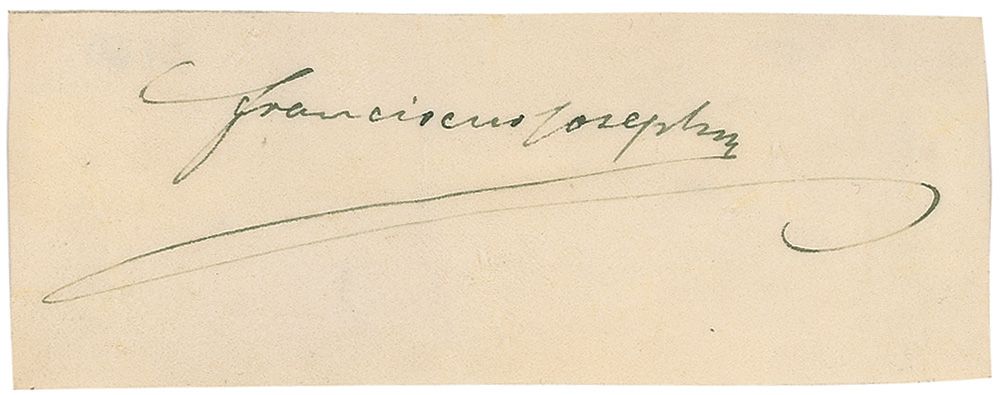 Franciscus Josephus